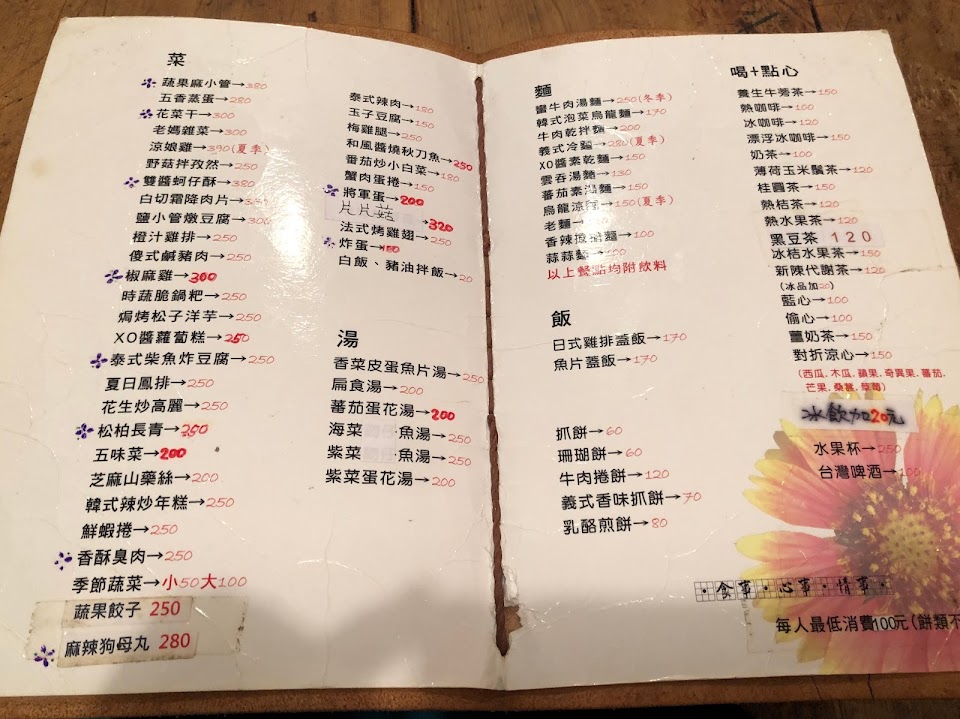 菜
蔬果麻小管→380
五香蒸蛋→280
花菜干→300
老媽雜菜→300
涼娘雞→390(夏季)
野菇拌孜然→250
雙醬蚵仔酥→380
白切霜降肉片→
鹽小管燉豆腐→
橙汁雞排→250
傻式鹹豬肉→250
椒麻雞→300
時蔬脆鍋粑→250
焗烤松子洋芋→250
XO醬蘿蔔糕→250
泰式柴魚炸豆腐→250
夏日鳳排→250
花生炒高麗→250
松柏長青→250
五味菜→200
芝麻山藥絲→200
韓式辣炒年糕→250
鮮蝦捲→250
香酥臭肉→250
季節蔬菜→小50大100
蔬果餃子 250
麻辣狗母丸 280
泰式辣肉→180
玉子豆腐→150
梅雞腿→250
和風醬燒秋刀魚→250
番茄炒小白菜→180
蟹肉蛋捲→150
將軍蛋→200
片片菇→320
法式烤雞翅→250
炸蛋→
白飯、豬油拌飯→20
湯
香菜皮蛋魚片湯→250
扁食湯→200
蕃茄蛋花湯→200
海菜 魚湯→250
紫菜 魚湯→250
紫菜蛋花湯→200
麵
牛肉湯麵→250(冬季)
韓式泡菜烏龍麵→170
牛肉乾拌麵→200
義式冷麵→280(夏季)
XO醬素乾麵→150
雲吞湯麵→130
蕃茄素湯麵→150
烏龍涼麵→150(夏季)
老麵→
香辣 麵→100
蒜蒜 →100
以上餐點均附飲料
飯
日式雞排蓋飯→170
魚片蓋飯→170
抓餅→60
珊瑚餅→60
牛肉捲餅→120
義式香味抓餅→70
乳酪煎餅→80
喝+點心
養生牛蒡茶→150
熱咖啡→100
冰咖啡→120
漂浮冰咖啡→150
奶茶→100
薄荷玉米鬚茶→120
桂圓茶→150
熱桔茶→120
熱水果茶→120
黑豆茶 120
冰桔水果茶→150
新陳代謝茶→120
(冰品加20)
藍心→100
偷心→100
薑奶茶→150
對折涼心→150
(西瓜.木瓜.蘋果.奇異果.蕃茄.
芒果.桑椹.草莓)
冰飲加20元
水果杯→250
台灣啤酒→100
·食事·心事·情事·
每人最低消費100元(餅類不